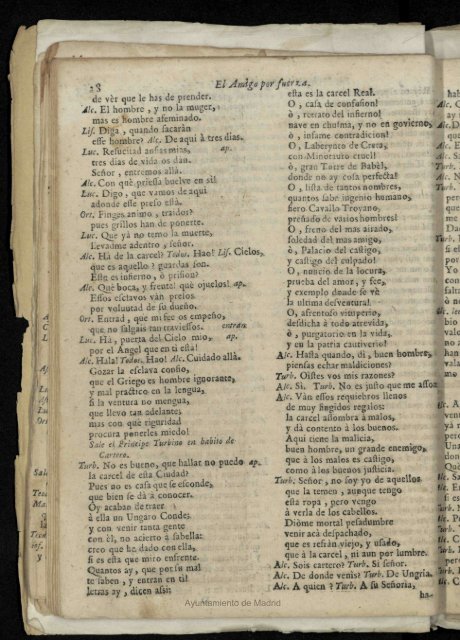 28
El Amigo por fuerza.
de vèr que le has de prender.
Alc. El hombre, y no la muger,
mas es hombre afeminado.
Lis. Diga, quando sacaràn
esse hombre? Alc. De aqui à tres dias.
Luc. Resucitad ansias mias, ap.
tres dias de vida os dan.
Señor, entremos allà.
Alc. Con què priessa buelve en sì!
Luc. Digo, que vamos de aqui
adonde esse preso està.
Ort. Finges animo, traidor?
pues grillos han de ponerte.
Luc. Que yà no temo la muerte,
llevadme adentro, señor.
Alc. Hà de la carcel? Todos. Hao! Lis. Cielos,
que es aquello? guardas son.
Este es infierno, ò prision?
Alc. Què boca, y frente! què ojuelos! ap.
Essos esclavos vàn presos
por voluntad de su dueño.
Ort. Entrad, que mi fee os empeño,
que no salgais tan traviessos. entran.
Luc. Hà, puerta del Cielo mio, ap.
por el Angel que en tì està!
Alc. Hala! Todos. Hao! Alc. Cuidado allà.
Gozar la esclava confio,
que el Griego es hombre ignorante,
y mal practico en la lengua,
si la ventura no mengua,
que llevo tan adelante;
mas con què riguridad
procura ponerles miedo!
Sale el Principe Turbino en habito de
Cartero.
Turb. No es bueno, que hallar no puedo ap.
la carcel de esta Ciudad?
Pues no es casa que se esconde,
que bien se dà à conocer.
Oy acaban de traer
à ella un Ungaro Conde;
y con venir tanta gente
con èl, no acierto à sabella:
creo que he dado con ella,
si es esta que miro enfrente.
Quantos ay, que por su mal
te saben, y entran en tì!
letras ay, dicen assi:
esta es la carcel Real.
O, casa de confusion!
ò, retrato del infierno!
nave en chusma, y no en govierno,
ò, infame contradicion!
O, Laberynto de Creta,
con Minotauro cruel!
ò, gran Torre de Babèl,
donde no ay cosa perfecta!
O, lista de tantos nombres,
quantos sabe ingenio humano,
fiero Cavallo Troyano,
preñado de varios hombres!
O, freno del mas airado,
soledad del mas amigo,
ò, Palacio del castigo,
y castigo del culpado!
O, nuncio de la locura,
prueba del amor, y fee,
y exemplo donde se vè
la ultima desventura!
O, afrentoso vituperio,
desdicha à todo atrevida,
ò, purgatorio en la vida,
y en la patria cautiverio!
Alc. Hasta quando, di, buen hombre,
piensas echar maldiciones?
Turb. Oistes vos mis razones?
Alc. Sì. Turb. No es justo que me
Alc. Vàn essos requiebros llenos
de muy fingidos regalos:
la carcel assombra à malos,
y dà contento à los buenos.
Aqui tiene la malicia,
buen hombre, un grande enemigo,
que à los malos es castigo,
como à los buenos justicia.
Turb. Señor, no soy yo de aquellos
que la temen, aunque tengo
esta ropa, pero vengo
à verla de los cabellos.
Diòme mortal pesadumbre
venir acà despachado,
que es refràn viejo, y usado,
que à la carcel, ni aun por lumbre.
Alc. Sois cartero? Turb. Si señor.
Alc. De donde venis? Turb. De Ungria.
Alc. A quien? Turb. A su Señoria,
ha-
Ayuntamiento de Madrid